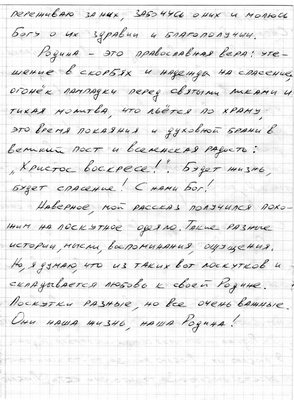 переживаю за них, забочусь о них и молюсь
Богу о их здравии и благополучии.
Родина – это православная вера: уте-
шение в скорбях и надежда на спасение,
огонёк лампадки перед святыми ликами и
тихая молитва, что льётся по храму,
это время покаяния и духовной брани в
великий пост и вселенская радость:
„Христос воскресе!". Будет жизнь,
будет спасение! С нами Бог!
Наверное, мой рассказ получился похо-
жим на лоскутное одеяло. Такие разные
истории, мысли, воспоминания, ощущения.
Но, я думаю, что из таких вот лоскутков и
складывается любовь к своей Родине.
Лоскутки разные, но все очень важные.
Они наша жизнь, наша Родина!